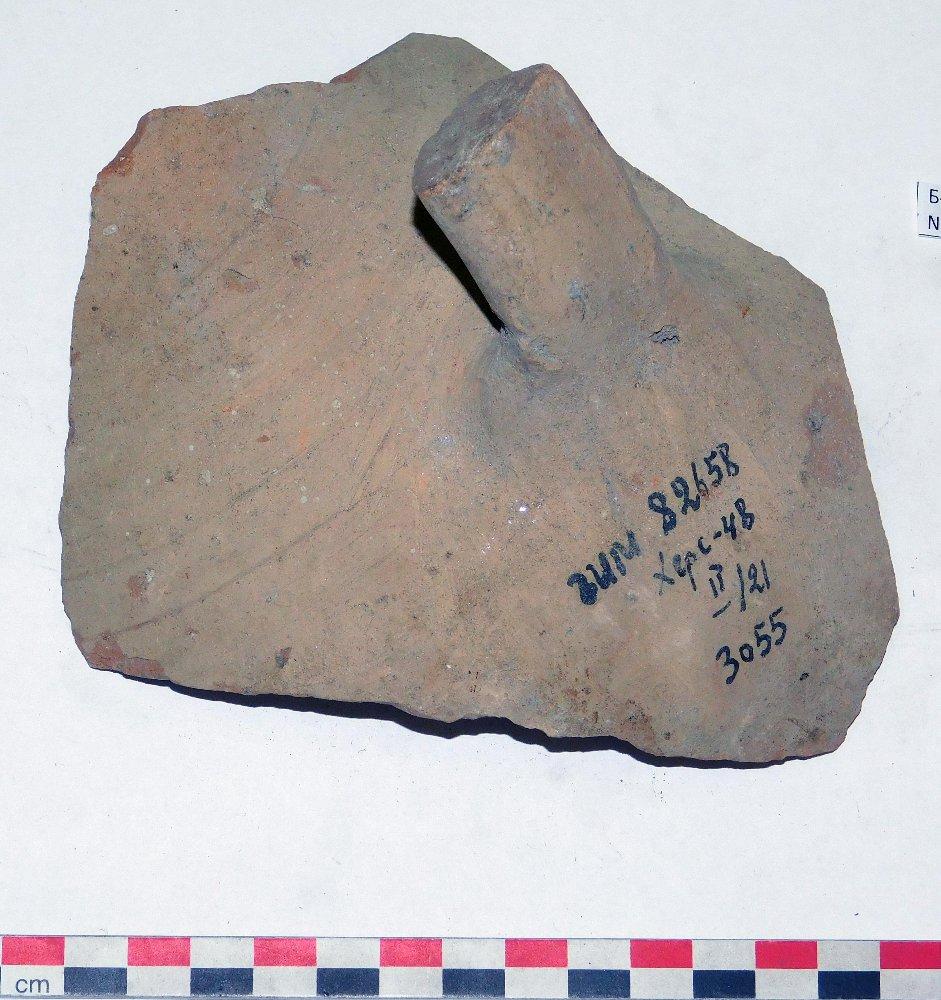 ГИМ 82658
Херс-48
II/21
3055
Б
N
cm